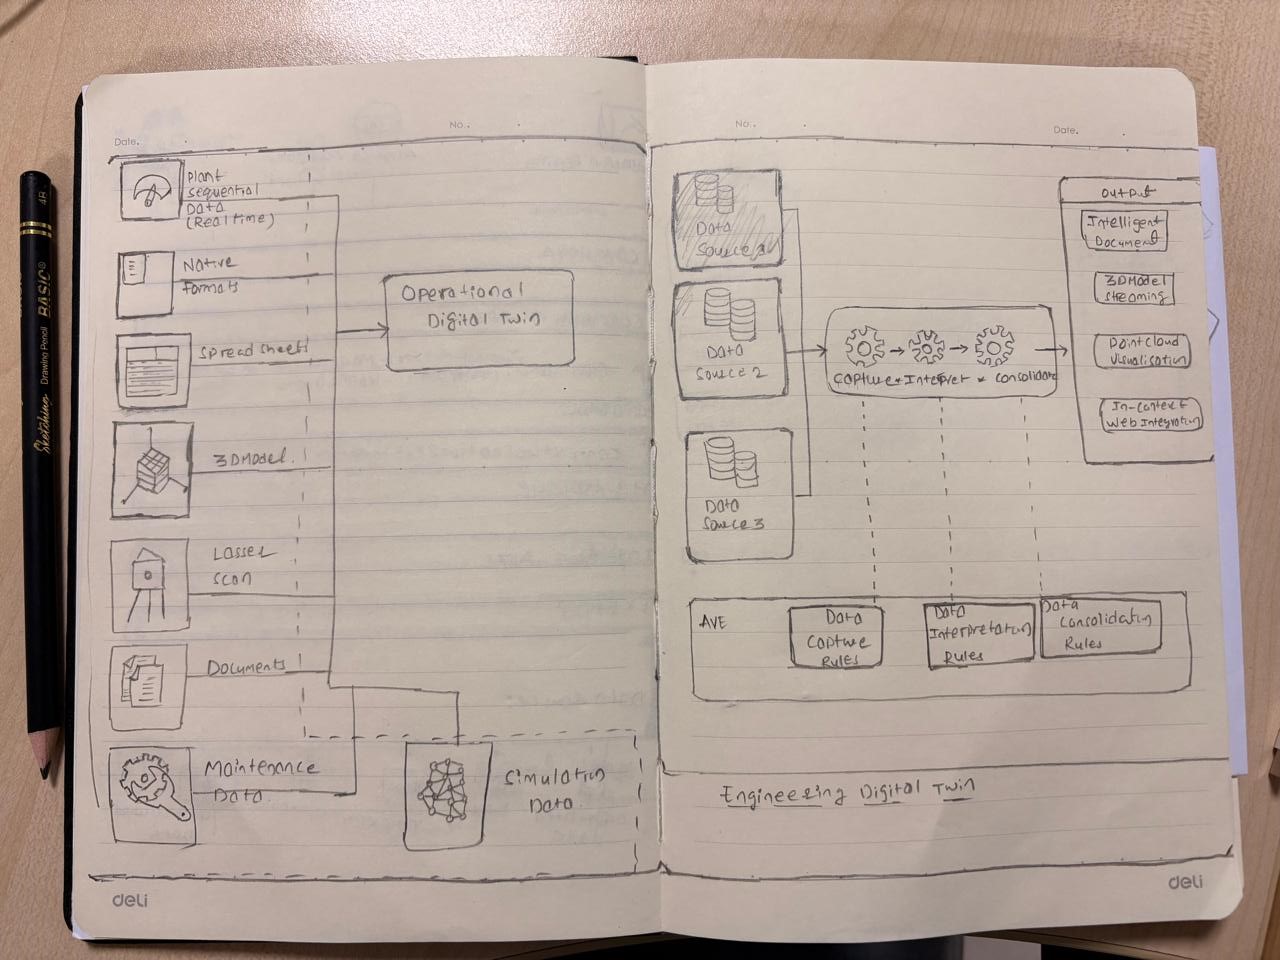 4B
BASIC®
Drawing Pencil
Sketching
Date.
No.
Plant
Sequential
Data
(Real time)
Native
Formats
Spread sheets
3DModel.
Lasser
Scan
Documents
Maintenance
Data.
Operational
Digital Twin
Simulation
Data.
deli
No.
Date.
Data
Source 1
Data
Source 2
Data
Source 3
Capture → Interpret → Consolidate
Output
Intelligent
Document
3DModel
Streaming
PointCloud
Visualisation
In-context
Web Integration
AVE
Data
Capture
Rules
Data
Interpretation
Rules
Data
Consolidation
Rules
Engineering Digital Twin
deli